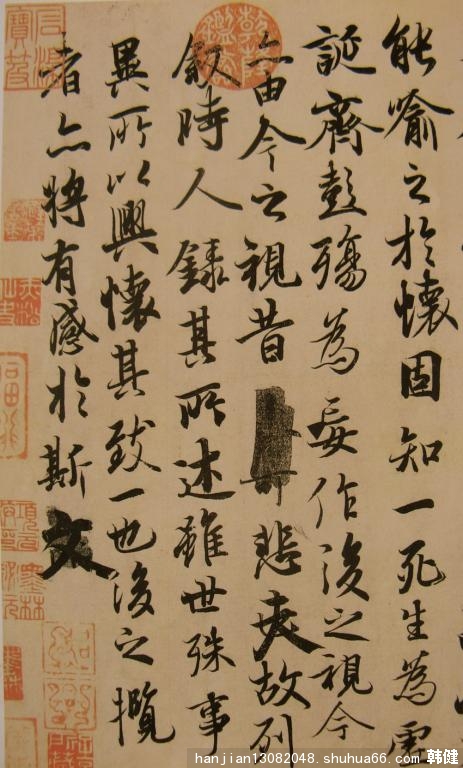 能喻之於懷固知一死生為虛
誕齊彭殤為妄作後之視今
亦由今之視昔悲夫故列
敘時人錄其所述雖世殊事
異所以興懷其致一也後之攬
者亦將有感於斯文
乾隆鑑賞
hanjian13082048.shuhua66.com 韩健